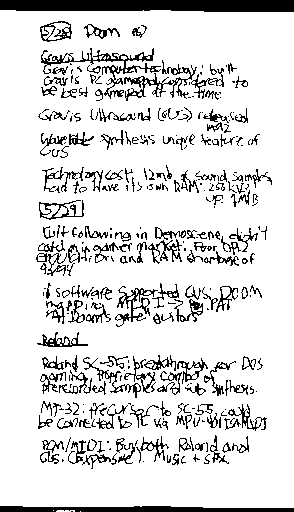 5/28 Doom
Gravis Ultrasound
Gravis Computer technology: built
Gravis PC gamepad, considered to
be best gamepad at the time
Gravis Ultrasound (GUS) released
Wavetable synthesis unique feature of
GUS
Technology cost, 12mb of sound samples,
had to have its own RAM. 256 KB
5/29
Cult following in Demoscene, didn't
catch on in gamer market. Poor OPL2
emulation and RAM shortage of
if software supported GUS: DOOM
mapping MIDI →
"At Doom's gate" guitars
Roland
Roland SC-55: breakthrough for DOS
gaming, proprietary combo of
prerecorded samples and sub synthesis.
MT-32: Precursor to SC-55, could
be connected to PC via MPU-401
Buy both Roland and
GUS. (Expensive). Music + sfx.